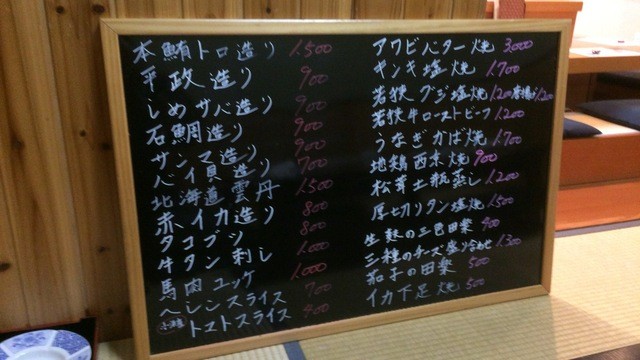 本鮪トロ造り 1.500
平政造り 900
しめサバ造り 900
石鯛造り 900
サンマ造り 900
バイ貝造り 700
北海道雲丹 1.500
赤イカ造り 800
タコブツ 800
牛タン刺し 1.000
馬肉ユッケ 1.000
ヘレンスライス 700
トマトスライス 400
アワビバター焼 3,000
キンキ塩焼 1.700
若狭グジ塩焼 1.200 1.200
若狭牛ローストビーフ 1.200
うなぎかば焼 1.700
地鶏西京焼 900
松茸土瓶蒸し 1.200
厚切りタン塩焼 1.500
生麩の三色田楽 900
三種のチーズ盛り合わせ 1.300
茄子の田楽 500
イカ下足焼 500